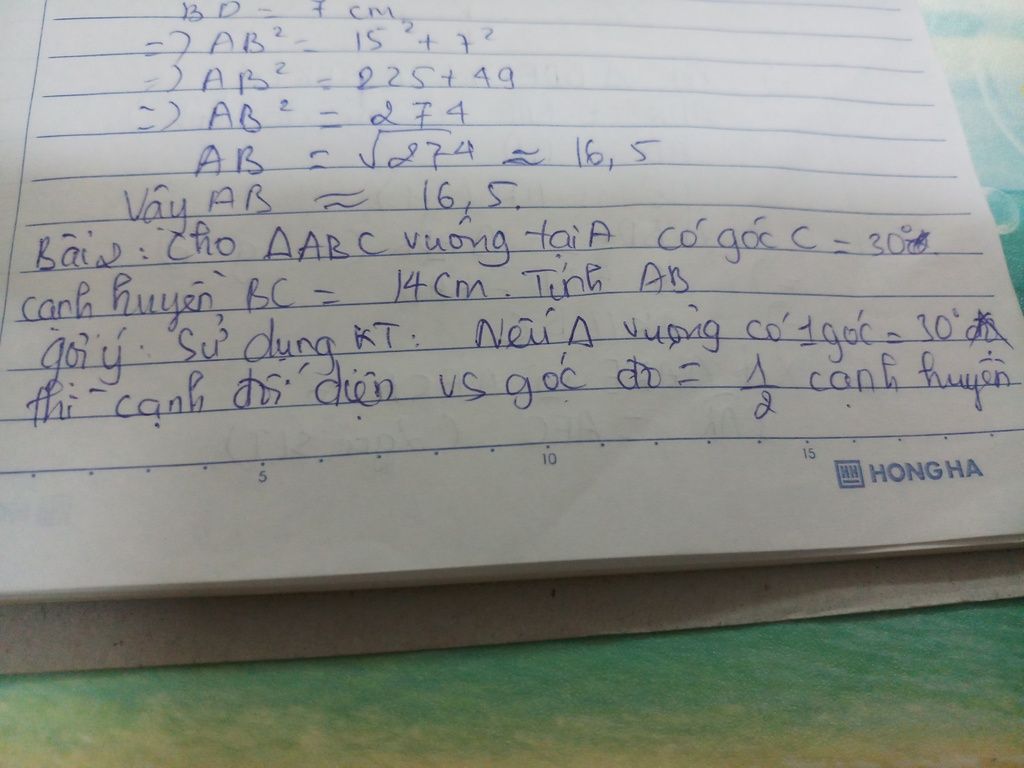 BD = 7 cm
=> AB² = 15² + 7²
=> AB² = 225 + 49
=> AB² = 274
AB = √274 ≈ 16,5
Vậy AB ≈ 16,5.
Bài 2: Cho ΔABC vuông tại A có góc C = 30°
cạnh huyền BC = 14cm. Tính AB
gợi ý: Sử dụng KT: Nếu Δ vuông có 1 góc = 30°
thì cạnh đối diện vs góc đó = 1/2 cạnh huyền
5 10 15
HH HONG HA